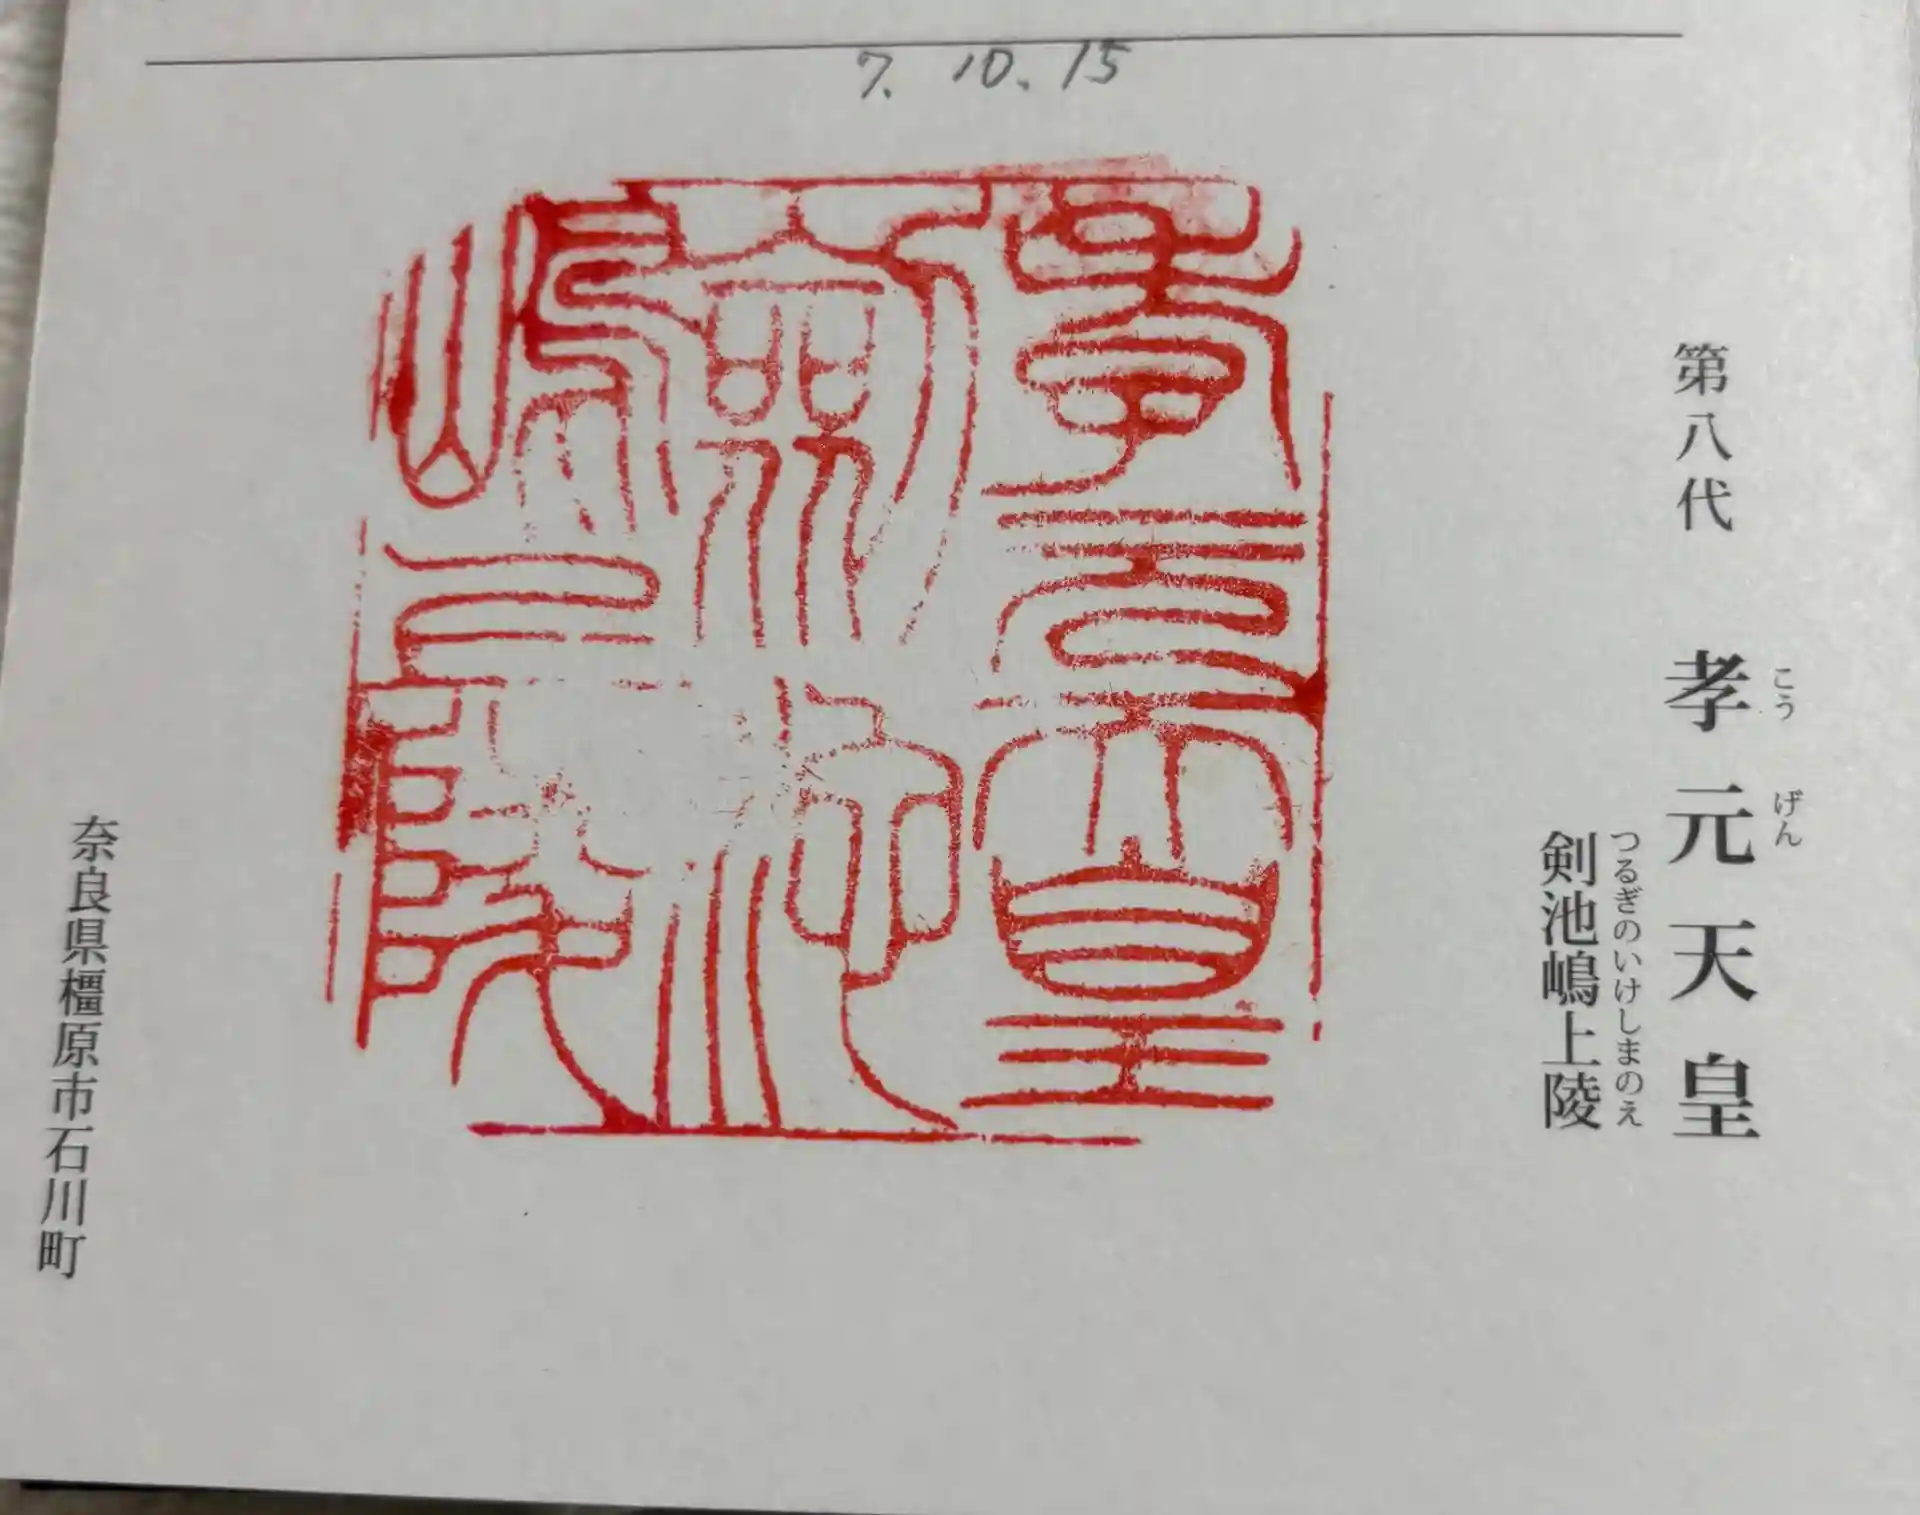 7. 10. 15
第八代 孝元天皇
こうげん
剣池嶋上陵
つるぎのいけしまのえ
孝元天皇
劔池
嶋上陵
奈良県橿原市石川町